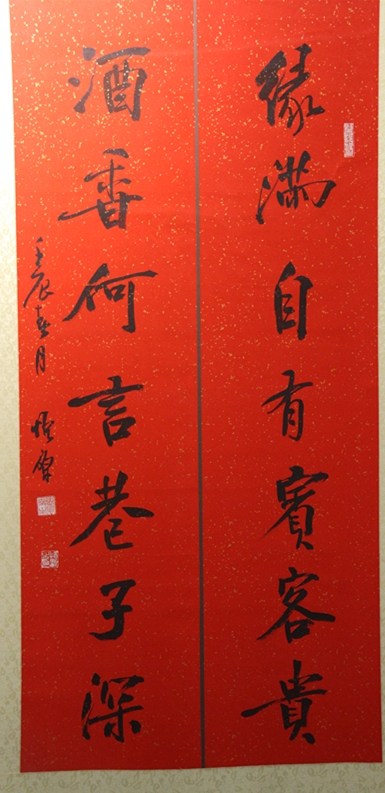 緣滿自有賓客貴
酒香何言巷子深
壬辰春月